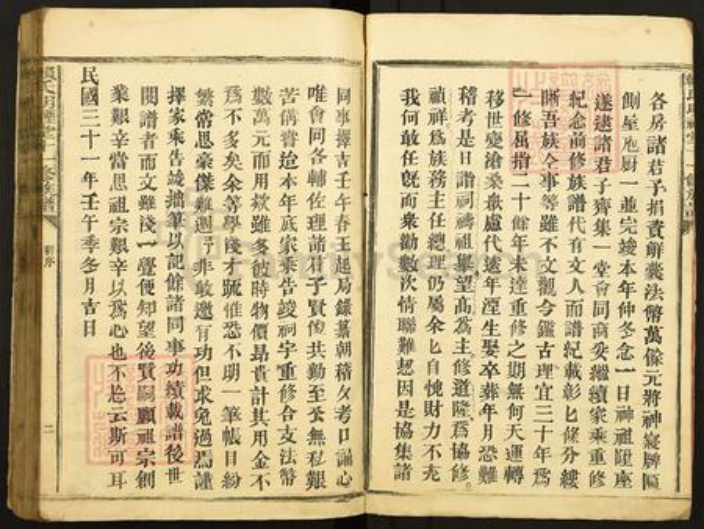 各房諸君予捐資解囊法幣萬餘元將神寢牌區
側屋庖厨一並完竣本年仲冬念一日神祖陞座
遂建諸君子齊集一堂會同商妥繼續家乘重修
紀念前修族譜代有文人而譜紀載彰匕條分縷
晰吾族仝事等雖不文觀今鑑古理宜三十年爲
一修屈指二十餘年未達重修之期無何天運轉
移世變滄桑慮代遠年湮生娶卒葬年月恐難
稽考是日諧祠禱祖舉望高爲主修道隆爲協修
禎祥爲族務主任總理仍屬余匕自愧財力不充
我何敢任既而衆勸數次情聯難恝因是協集諸
同事擇吉壬午春王起局錄纂朝稽夕考口誦心
唯會同各輔佐理諸君子賢俊共勷至公無私艱
苦備嘗迨本年底家乘告竣祠宇重修合支法幣
數萬元而用欵雖多彼時物價昂貴計其用金不
爲不多矣余等學淺才疎惟恐不明一筆帳目紛
繁常思豪傑難週 非敢邀有功但求免過焉謹
擇家乘告竣搦筆以記餘諸同事功績載譜後世
閱譜者而文雖淺一覽便知望後賢嗣願祖宗創
業艱辛當思祖宗艱辛以爲心也不忘云斯可耳
民國三十一年壬午季冬月吉日
新序
二
FamilySearch